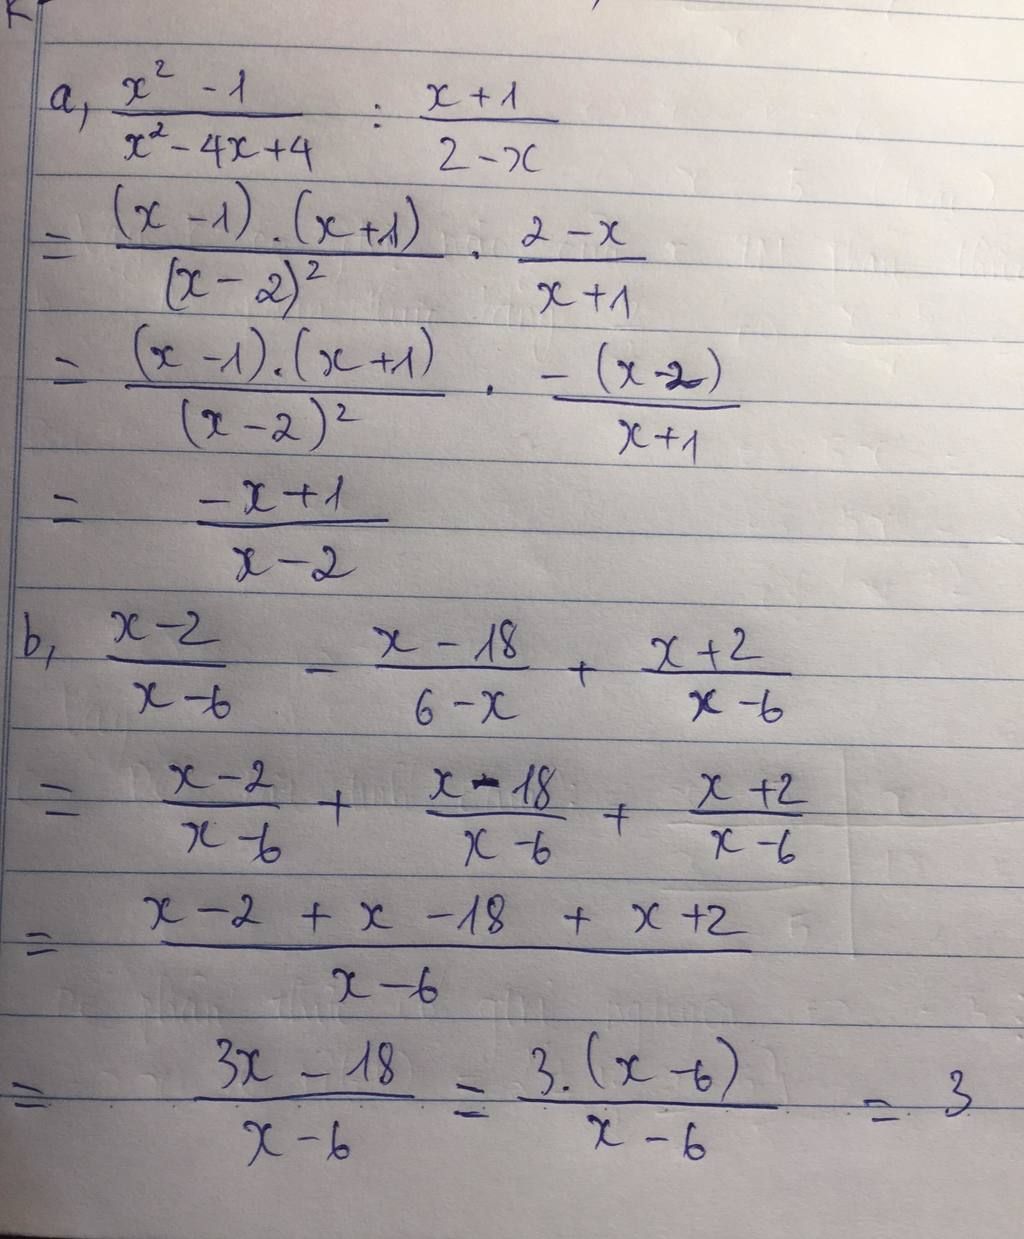 a, (x² - 1)/(x² - 4x + 4) : (x + 1)/(2 - x)
= ((x - 1) . (x + 1))/((x - 2)²) . (2 - x)/(x + 1)
= ((x - 1) . (x + 1))/((x - 2)²) . (- (x - 2))/(x + 1)
= (- x + 1)/(x - 2)
b, (x - 2)/(x - 6) - (x - 18)/(6 - x) + (x + 2)/(x - 6)
= (x - 2)/(x - 6) + (x - 18)/(x - 6) + (x + 2)/(x - 6)
= (x - 2 + x - 18 + x + 2)/(x - 6)
= (3x - 18)/(x - 6) = (3 . (x - 6))/(x - 6) = 3